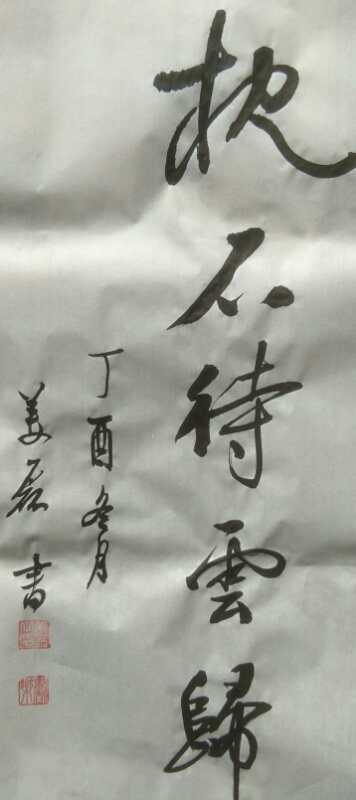 枕石待雲歸
丁酉冬月
姜磊書